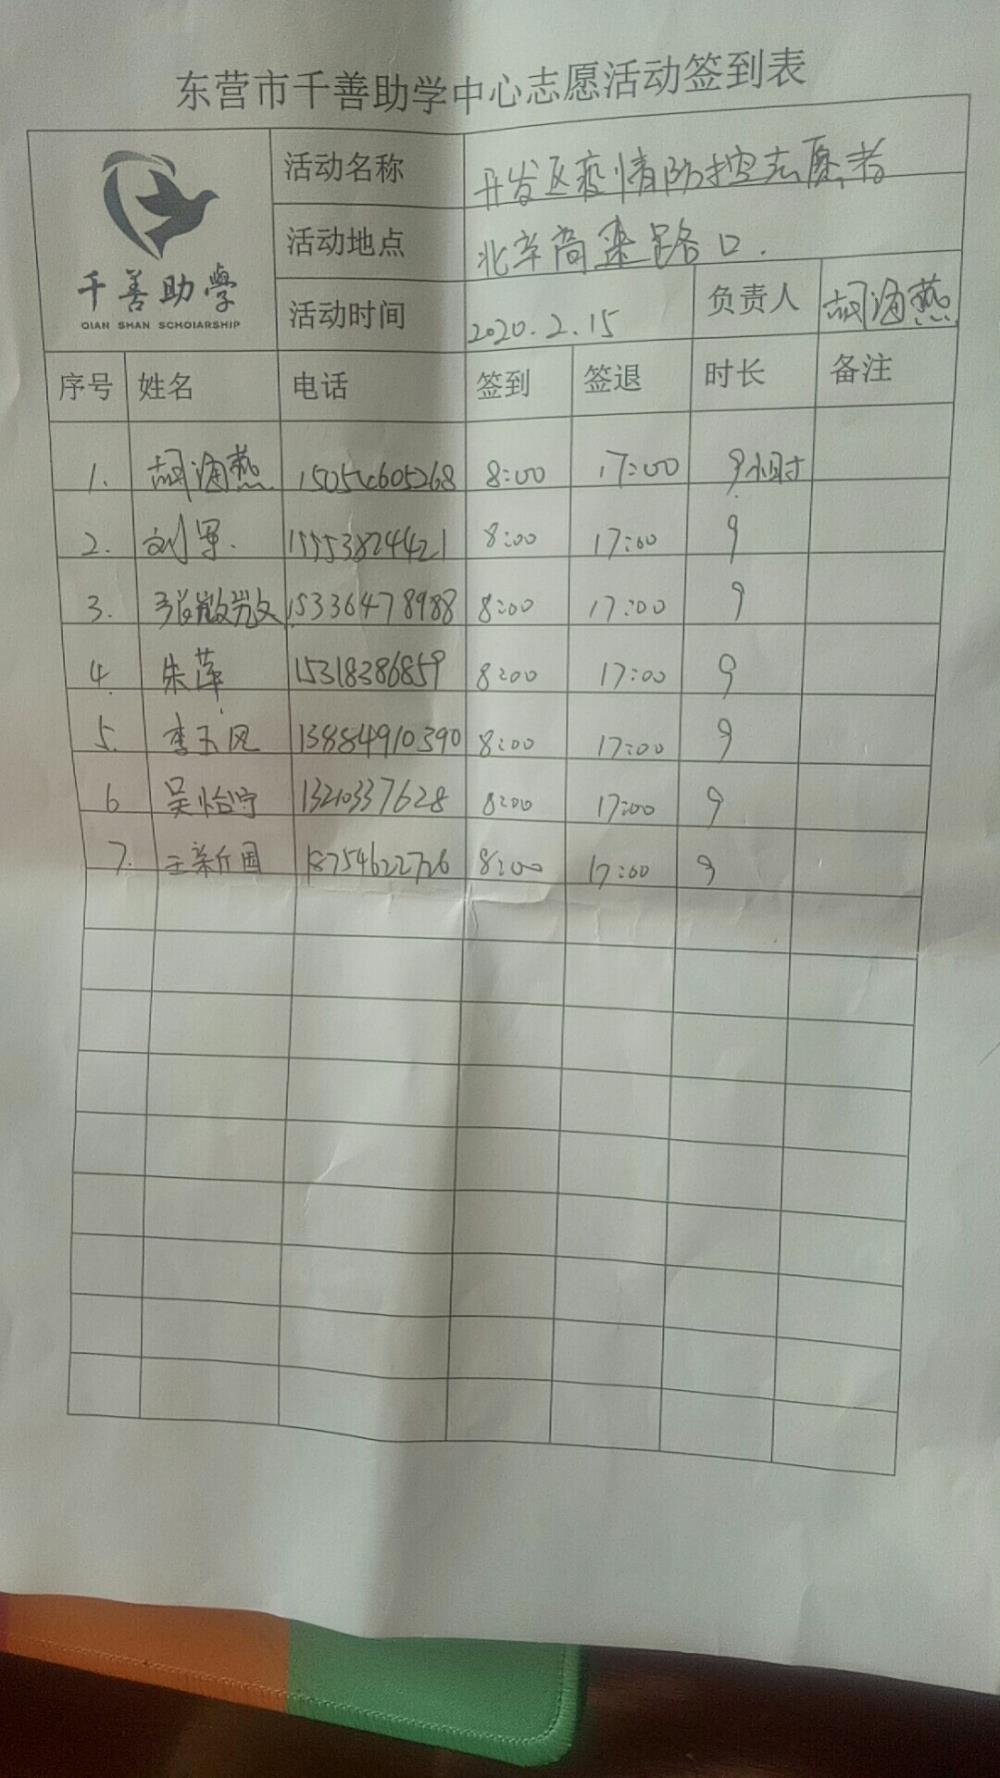 东营市千善助学中心志愿活动签到表
千善助學
QIAN SHAN SCHOIARSHIP
活动名称 开发区疫情防控志愿者
活动地点 北辛商渠路口.
活动时间 2020.2.15 负责人 胡海燕
序号 姓名 电话 签到 签退 时长 备注
1. 胡海燕 8:00 17:00 9小时
2. 刘军. 15553824421 8:00 17:00 9
3. 张微微 15336478988 8:00 17:00 9
4. 朱萍 15318386859 8:00 17:00 9
5. 李玉风 8:00 17:00 9
6 吴怡宁 13210337628 8:00 17:00 9
7. 王新国 18754622726 8:00 17:00 9